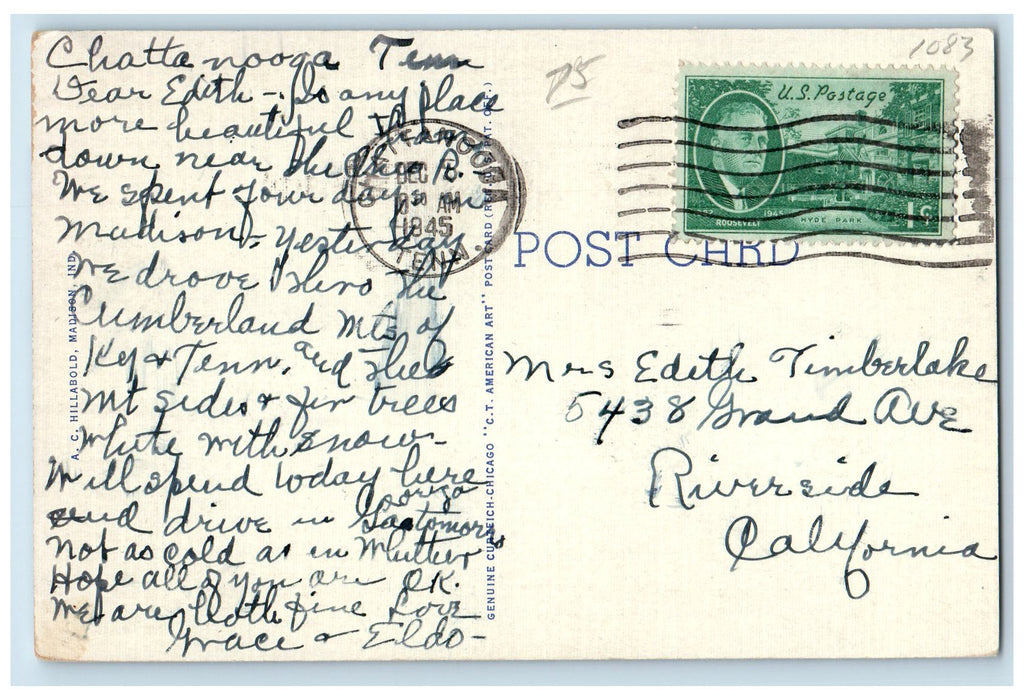 Chattanooga Tenn
Dear Edith - Is any place
more beautiful than
down near the Ohio R. -
We spent four days in
Madison - yesterday
we drove thro the
Cumberland Mts of
Ky & Tenn, and the
mt sides & fir trees
white with snow -
Will spend today here
and drive in Georgia tomorrow
Not as cold as in Whittier
Hope all of you are OK.
We are both fine Love
Grace & Eldo -
A. C. HILLABOLD, MADISON, IND.
GENUINE CURTEICH-CHICAGO "C.T. AMERICAN ART" POST CARD (REG. U.S. PAT. OFF.)
CHATTANOOGA
DEC
AM
1945
TENN
75
1083
U.S. Postage
1945
HYDE PARK
ROOSEVELT
1¢
POST CARD
Mrs Edith Timberlake
5438 Grand Ave
Riverside
California